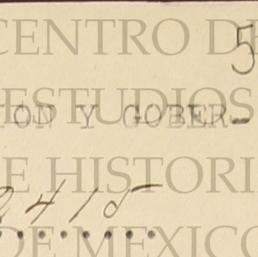 CENTRO DE
5
ESTUDIOS
ON Y GOBER-
E HISTORI
2415
DE MEXICO